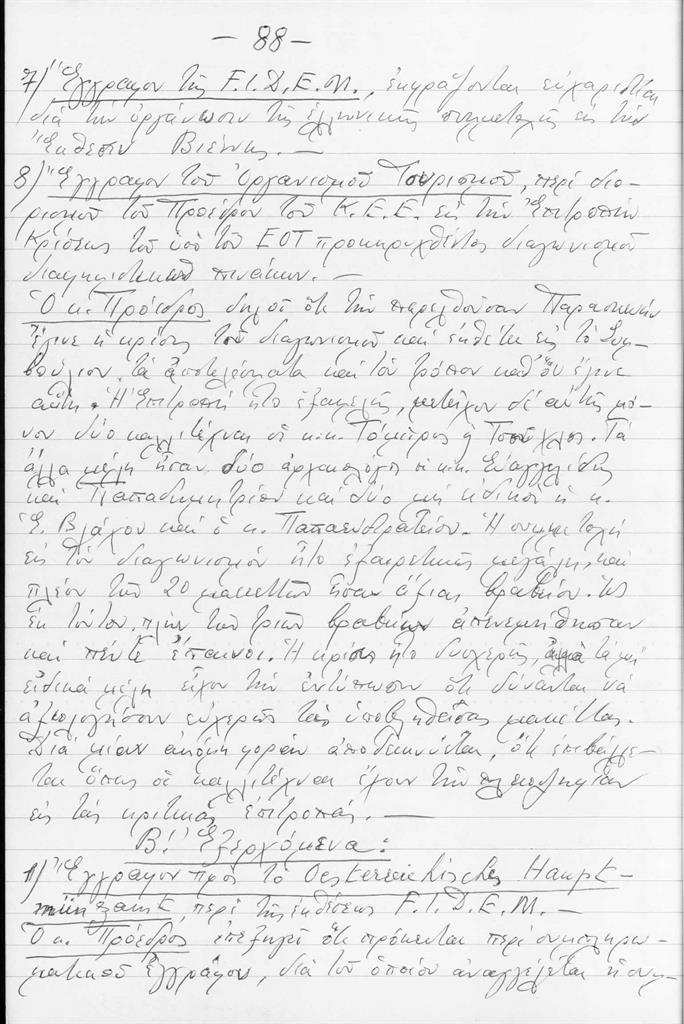 — 88 —
7) Ἔγγραφον τῆς F.I.D.E.M., ἐκφράζονται εὐχαριστίαι
διὰ τὴν ὀργάνωσιν τῆς ἑλληνικῆς συμμετοχῆς εἰς τὴν
Ἔκθεσιν Βιέννης. —
8) Ἔγγραφον τοῦ Ὀργανισμοῦ Τουρισμοῦ, περὶ διο-
ρισμοῦ τοῦ Προέδρου τοῦ Κ.Ε.Ε. εἰς τὴν Ἐπιτροπὴν
Κρίσεως τοῦ ὑπὸ τοῦ ΕΟΤ προκηρυχθέντος διαγωνισμοῦ
διαφημιστικῶν πινάκων. —
Ὁ κ. Πρόεδρος δηλοῖ ὅτι τὴν παρελθοῦσαν Παρασκευὴν
ἔγινε ἡ κρίσις τοῦ διαγωνισμοῦ καὶ ἐκθέτει εἰς τὸ Συμ-
βούλιον τὰ ἀποτελέσματα καὶ τὸν τρόπον καθ' ὃν ἔγινε
αὕτη. Ἡ Ἐπιτροπὴ ἦτο ἑξαμελής, μετεῖχον δὲ αὐτῆς μό-
νον δύο καλλιτέχναι οἱ κ.κ. Τόμπρος ἢ Τσοῦχλος. Τὰ
ἄλλα μέλη ἦσαν δύο ἀρχαιολόγοι οἱ κ.κ. Εὐαγγελίδης
καὶ Παπαδημητρίου καὶ δύο μὴ εἰδικοὶ ἡ κ.
Ἑ. Βλάχου καὶ ὁ κ. Παπαευστρατίου. Ἡ συμμετοχὴ
εἰς τὸν διαγωνισμὸν ἦτο ἐξαιρετικῶς μεγάλη, καὶ
πλέον τῶν 20 μακεττῶν ἦσαν ἄξιαι βραβείου. Ὡς
ἐκ τούτου, πλὴν τῶν τριῶν βραβείων ἀπενεμήθησαν
καὶ πέντε ἔπαινοι. Ἡ κρίσις ἦτο δυσχερής, ἀλλὰ τὰ μὴ
εἰδικὰ μέλη εἶχον τὴν ἐντύπωσιν ὅτι δύνανται νὰ
ἀξιολογήσουν εὐχερῶς τὰς ὑποβληθείσας μακέττας.
Διὰ μίαν ἀκόμη φορὰν ἀποδεικνύεται, ὅτι ἐπιβάλλε-
ται ὅπως οἱ καλλιτέχναι ἔχουν τὴν πλειοψηφίαν
εἰς τὰς κριτικὰς ἐπιτροπάς. —
Β!' Ἐξερχόμενα:
1) Ἔγγραφον πρὸς τὸ Oesterreichisches Haupt-
münzamt, περὶ τῆς ἐκθέσεως F.I.D.E.M. —
Ὁ κ. Πρόεδρος ἐπεξηγεῖ ὅτι πρόκειται περὶ συμπληρω-
ματικοῦ ἐγγράφου, διὰ τοῦ ὁποίου ἀναγγέλεται ἡ συμ-